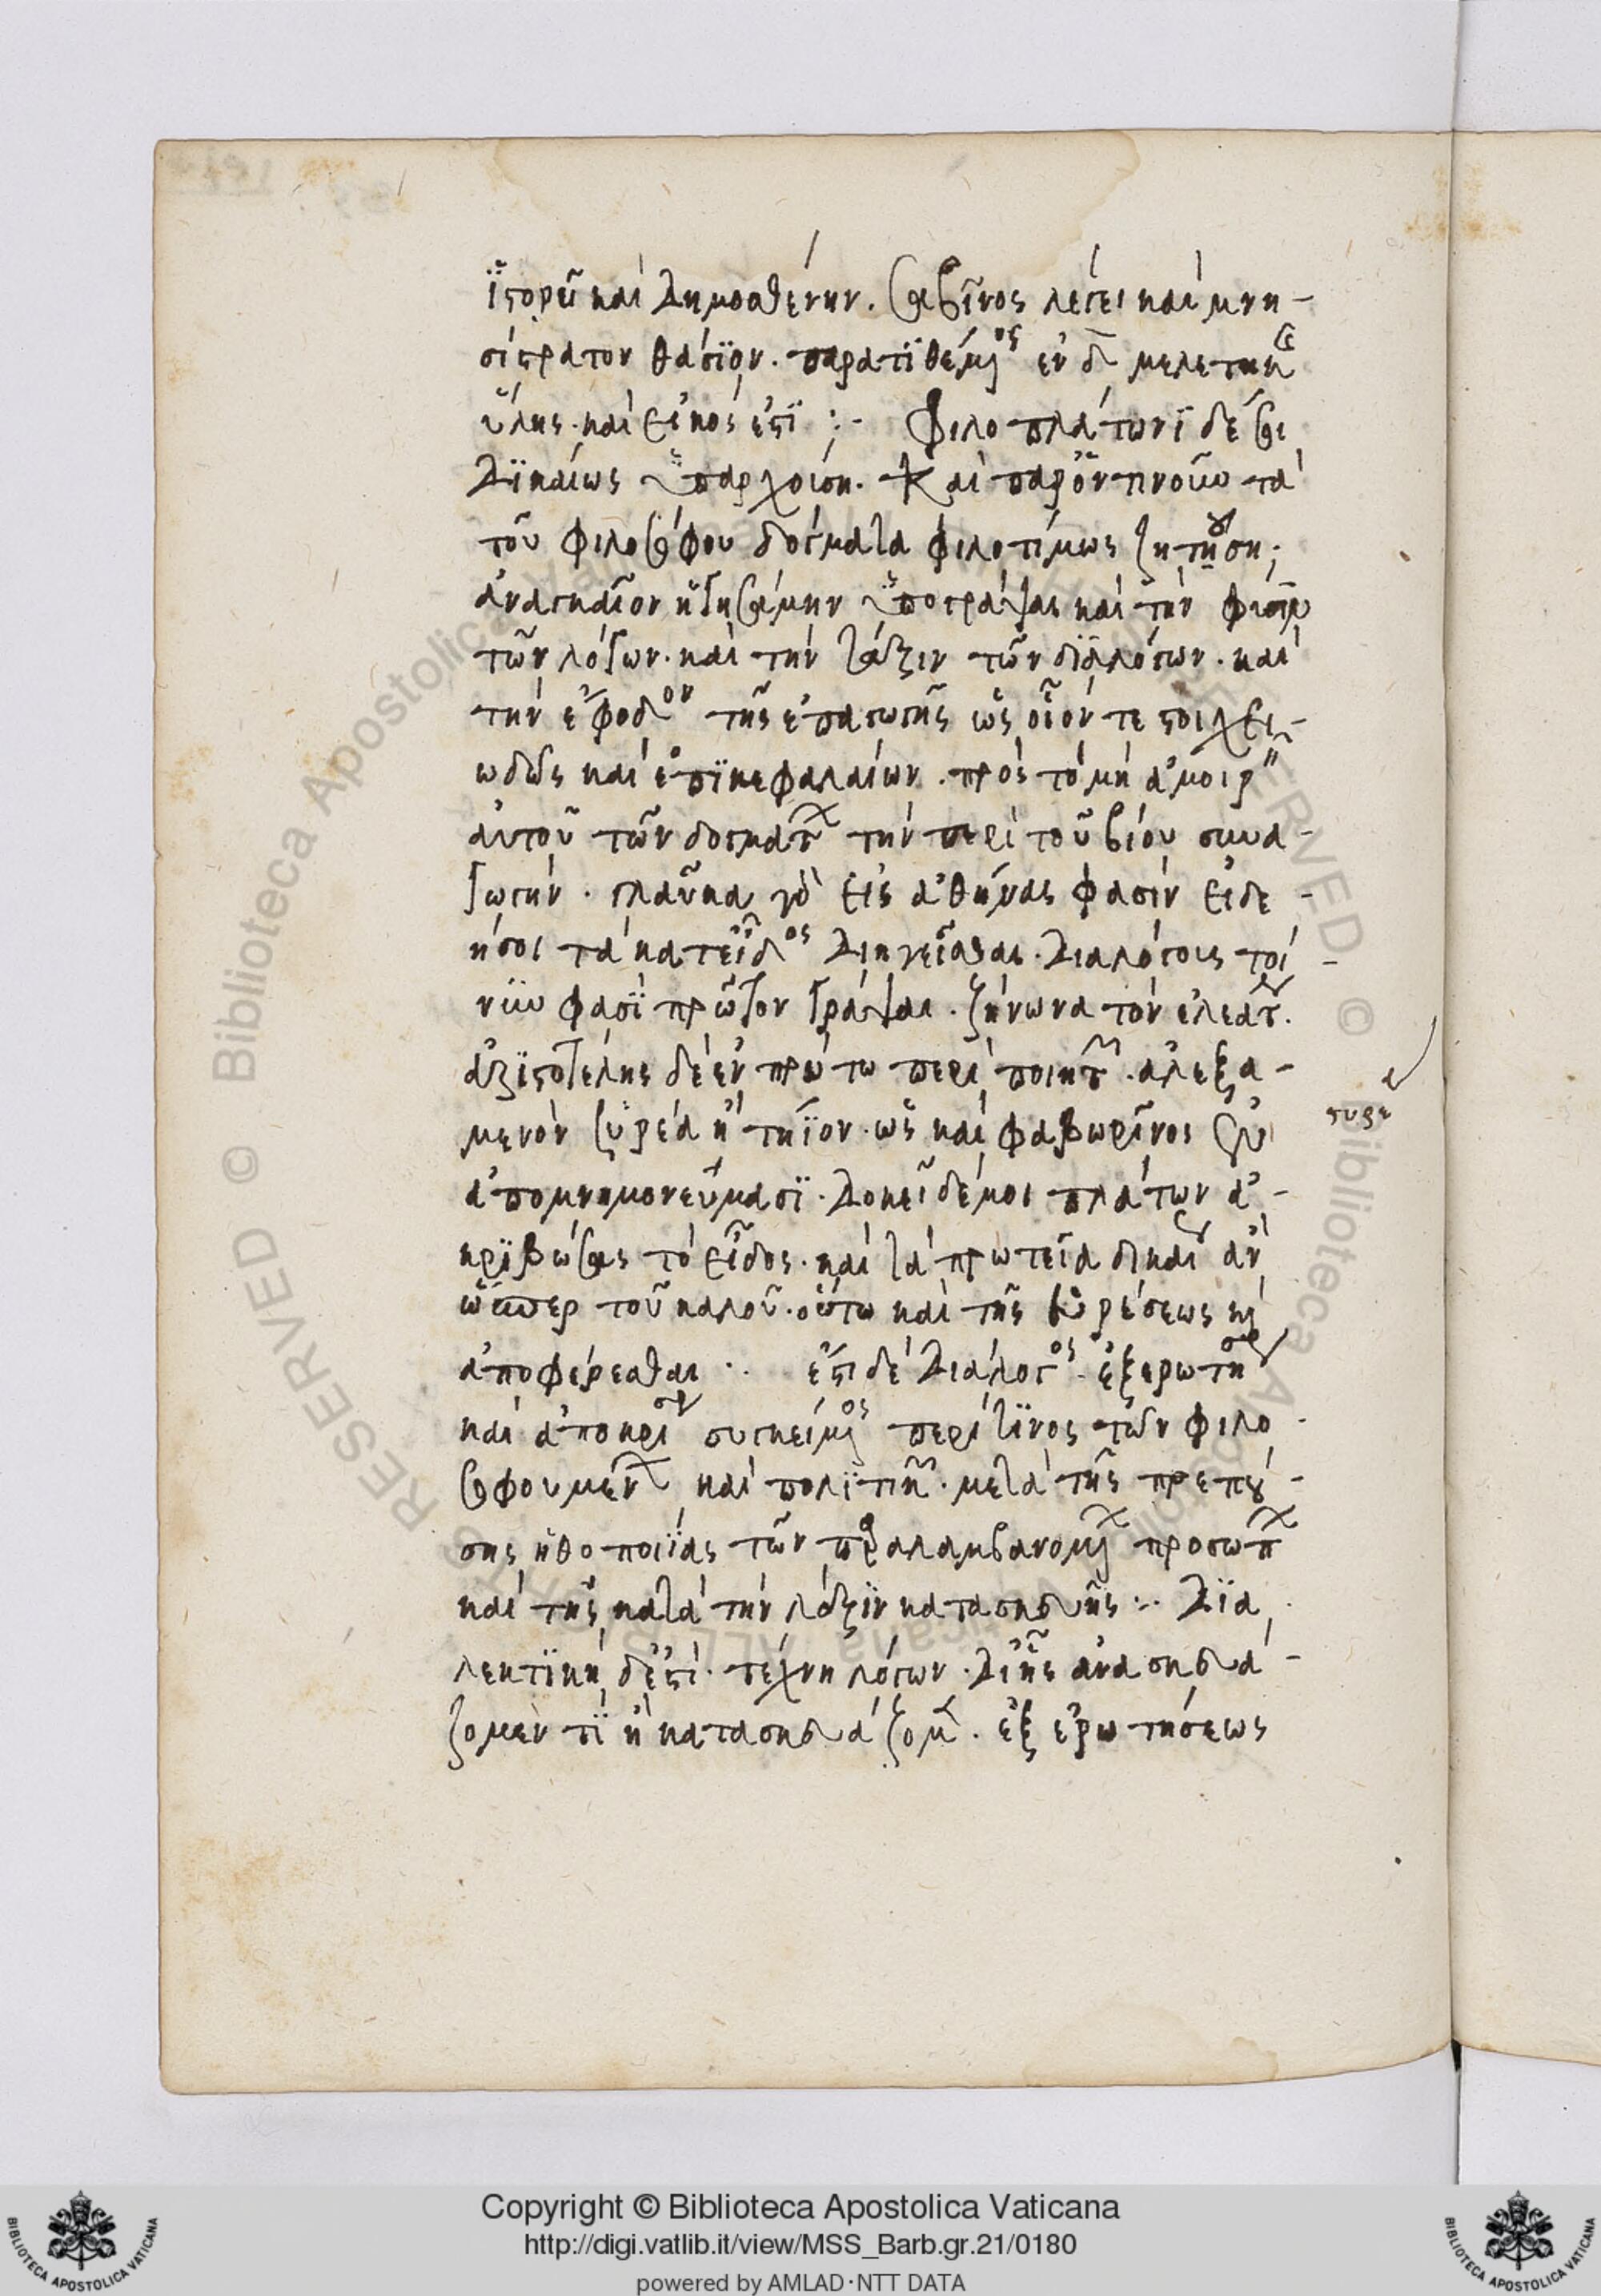 ἱστορεῖ καὶ Δημοσθένην. Σαβῖνος λέγει καὶ μνη-
σίστρατον θάσϊον. παρατιθέμενος ἐν δ μελετικῆς
ὕλης. καὶ εἰκός ἐστι :- Φιλοπλάτωνϊ δέ σοι
Δϊκαίως ὑπαρχούση. Καὶ παρ' ὁντινοῦν τὰ
τοῦ φιλοσόφου δόγματα φιλοτίμως ζητούση;
ἀναγκαῖον ἡγησάμην ὑπογράψαι καὶ τὴν φύσιν
τῶν λόγων. καὶ τὴν τάξιν τῶν διαλόγων. καὶ
τὴν ἔφοδον τῆς ἐπαγωγῆς ὡς οἷόν τε στοιχει-
ωδῶς καὶ ἐπὶ κεφαλαίων. πρὸς τὸ μὴ ἀμοιρεῖν
αὐτοῦ τῶν δογμάτων τὴν περὶ τοῦ βίου συνα-
γωγήν. γλαῦκα γὰρ εἰς ἀθήνας φασὶν εἰ δε-
ήσοι τὰ κατ' εἶδος Διηγεῖσθαι. Διαλόγους τοί-
νυν φασὶ πρῶτον γράψαι. ζήνωνα τὸν ἐλεάτην.
ἀριστοτέλης δὲ ἐν πρώτω περὶ ποιητῶν. ἀλεξα-
μενὸν ζυρέα ἢ τήϊον. ὡς καὶ φαβωρῖνος ἐν
ἀπομνημονεύμασϊ. Δοκεῖ δέ μοι πλάτων ἀ-
κρϊβώσας τὸ εἶδος. καὶ τὰ πρωτεῖα δικαίως ἂν
ὥσπερ τοῦ κάλους. οὕτω καὶ τῆς εὑρέσεως καὶ
ἀποφέρεσθαι .. ἔστι δὲ Διάλογος. ἐξ ἐρωτήσεως
καὶ ἀποκρίσεως συγκείμενος περί τϊνος τῶν φιλο-
σοφουμένων καὶ πολϊτικῶν. μετὰ τῆς πρεπού-
σης ἠθοποιϊας τῶν παραλαμβανομένων προσώπων
καὶ τῆς κατὰ τὴν λέξϊν κατασκευῆς :. Δϊα
λεκτϊκὴ δέ ἐστι. τέχνη λόγων. Δι' ἧς ἀνασκευά-
ζομέν τϊ ἢ κατασκευάζομεν. ἐξ ἐρωτήσεως
Copyright © Biblioteca Apostolica Vaticana
http://digi.vatlib.it/view/MSS_Barb.gr.21/0180
powered by AMLAD·NTT DATA